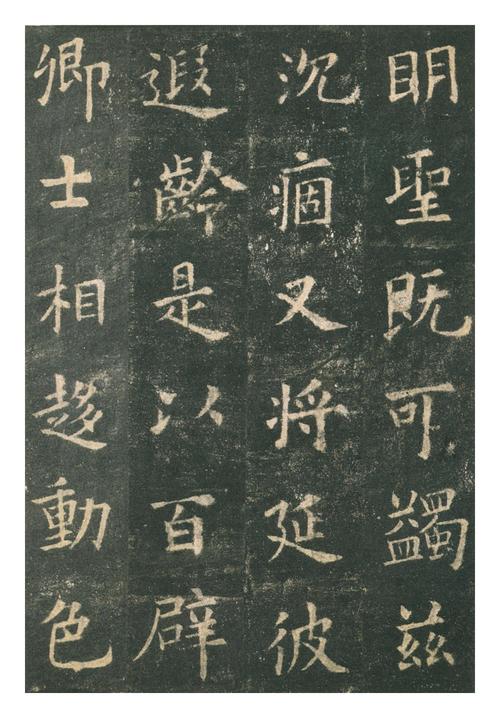 明聖既可蠲茲
沉痼又将延彼
遐齡是以百辟
卿士相趍動色